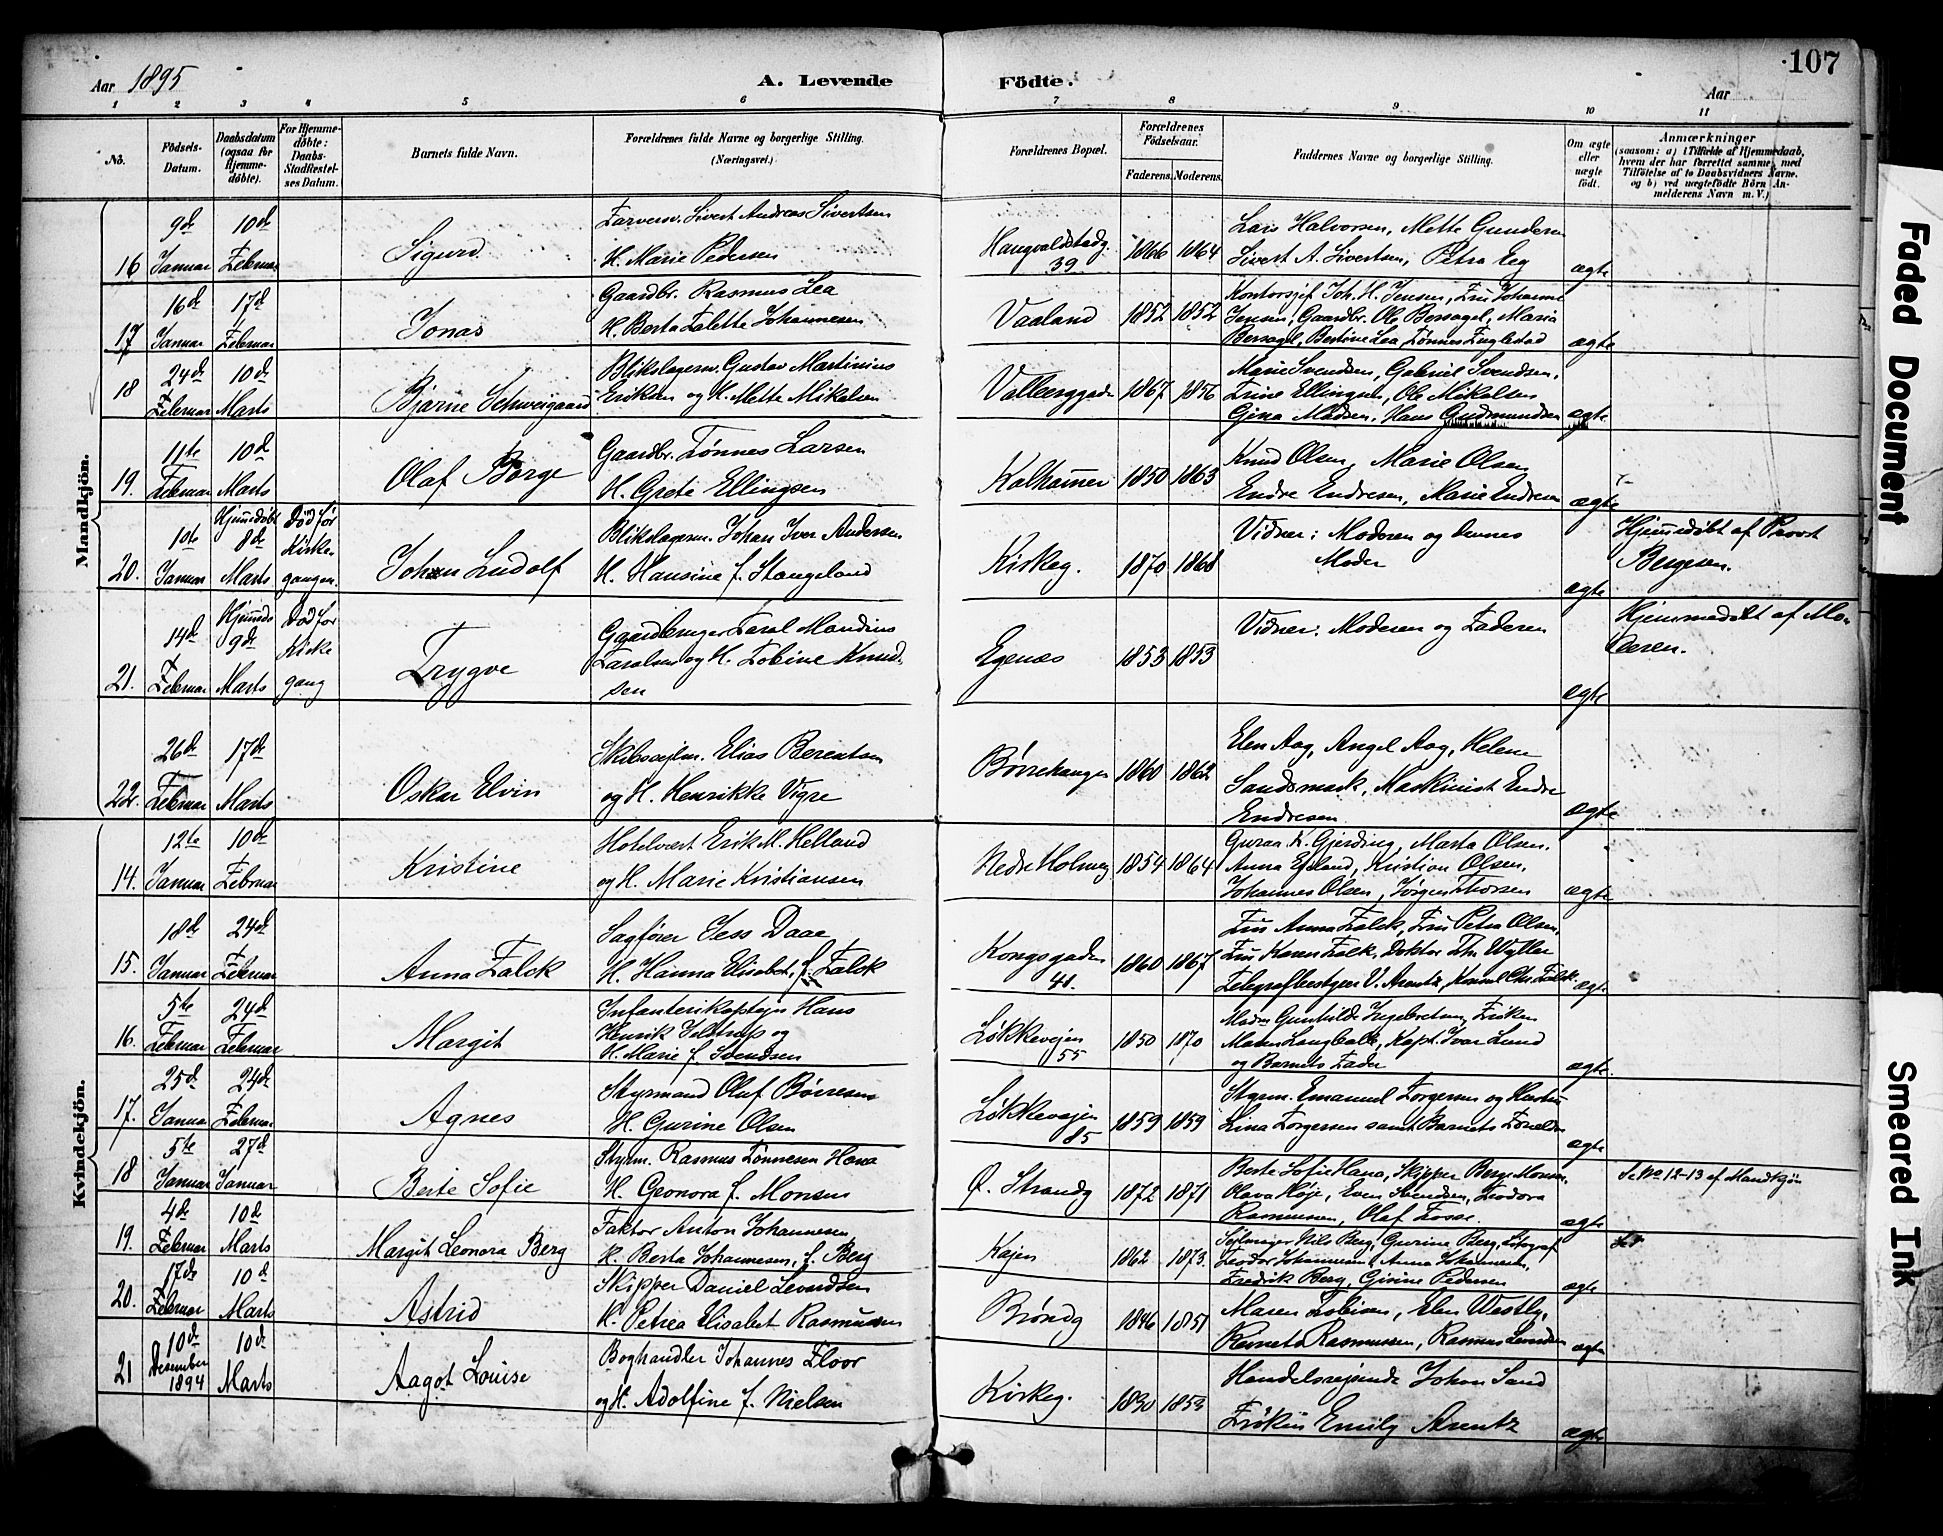 107
Aar 1895
A. Levende Fødte.
Aar
1 2 3 4 5 6 7 8 9 10 11
No.
Fødsels-Datum.
Daabsdatum (ogsaa for Hjemme-døbte).
For Hjemme-døbte: Daabs-Stadfæstel-ses Datum.
Barnets fulde Navn.
Forældrenes fulde Navne og borgerlige Stilling. (Næringsvei.)
Forældrenes Bopæl.
Forældrenes Fødselsaar.
Faderens. Moderens.
Faddernes Navne og borgerlige Stilling.
Om ægte eller uægte født.
Anmærkninger
(saasom: a) i Tilfælde af Hjemmedaab, hvem der har forrettet samme, med Tilføielse af to Daabsvidners Navne, og b) ved uægtefødte Børn An-melderens Navn m. V.)
Mandkjön.
16 9de Januar 10de Februar Sigurd
Farverm. Sivert Andreas Sivertsen
H. Marie Pedersen
Haugvaldstadg. 39 1866 1864
Lars Halvorsen, Mette Gundersen
Sivert A. Sivertsen, Petra Eeg
ægte
17 16de Januar 17de Februar Jonas
Gaardbr. Rasmus Lea
H. Berta Talette Johannesen
Vaaland 1852 1852
Kontorsjef Joh. H. Jensen, Fru Johanne
Jensen, Gaardbr. Ole Bersagel, Maria
Bersagel, Bertine Lea, Tønnes
ægte
18 24de Februar 10de Marts Bjarne Schweigaard
Blikslagerm. Gustav Martinius
Eriksen og H. Mette Mikalsen
Vallberggade 1867 1856
Marie Svendsen, Gabriel Svendsen,
Trine Ellingsen, Ole Mikalsen
Gina Madsen, Hans Gudmundsen
ægte
19. 11te Februar 10de Marts Olaf Børge
Gaardbr. Tønnes Larsen
H. Grete Ellingsen
Kalhammer 1850 1863
Knud Olsen, Marie Olsen
Endre Endresen, Marie Endresen
ægte
20. 10de Januar Hjemmedøbt 8de Marts Død før Kirkegangen. Johan Ludolf
Blikslagerm. Johan Iver Andersen
H. Hansine f. Stangeland
Kirkeg. 1870 1868
Vidner: Moderen og dennes
Moder
ægte
Hjemmedøbt af Provst
Bergesen.
21. 14de Februar 9de Marts Død før Kirkegang Trygve
Gaardbruger Taral Mandius
Taralsen og H. Tobine Knud-
sen
Egenæs 1853 1853
Vidner: Moderen og Faderen
ægte
Hjemmedøbt af Mo-
deren.
22. 26de Februar 17de Marts Oskar Elvin
Skibssejlm. Elias Berentsen
og H. Henrikke Vigre
Børrehaugen 1860 1862
Elen Aag, Angel Aag, Helene
Sandsmark, Maskinist Endre
Endresen
ægte
Kvindekjön.
14. 12te Januar 10de Februar Kristine
Hotelvært Erik M. Helland
og H. Marie Kristiansen
Nedre Holmeg 1854 1864
Guraa K. Gjerding, Marta Olsen.
Anna Egeland, Kristian Olsen,
Johannes Olsen, Jørgen Thorsen
ægte
15. 18de Januar 24de Februar Anna Falck
Sagfører Jess Daae
H. Hanna Elisabet, f. Falck
Kongsgaden 41. 1860 1867
Fru Anna Falck, Fru Petra Olsen,
Fru Karen Falk, Doktor Th. Wyller
Telegrafbestyrer V. Arentz, Konsul Chr. Falck
ægte
16. 5te Februar 24de Februar Margit
Infanterikaptejn Hans
Henrik Jelstrup og
H. Marie f. Svendsen
Løkkevejen 55 1850 1870
Madm Gunhilde Ingebretsen, Frøken
Maren Langballe, Kapt. Ivar Lund
og Barnets Fader
ægte.
17. 25de Januar 24de Februar Agnes
Styrmand Oluf Børresen
H. Gurine Olsen
Løkkevejen 85 1859 1859
Styrm. Emanuel Torgersen og Hustru
Lina Torgersen samt Barnets Forældre
ægte
18 5te Januar 27de Januar Berte Sofie
Styrm. Rasmus Tønnesen Hana
H. Geonora f. Monsen
Ø. Strandg 1872 1871
Berte Sofie Hana, Skipper Berge Monsen,
Olava Høje, Even Svendsen, Teodora
Rasmussen, Olaf Fosse.
ægte
Se No 12-13 af Mandkjøn
19. 4de Februar 10de Marts Margit Leonora Berg
Faktor Anton Johannesen
H. Berta Johannesen, f. Berg
Kajen 1862 1873.
Nils Berg, Gurine Berg, Litograf
Teodor Johannesen, Anna Johannesen,
Fredrik Berg, Girine Pedersen
ægte
20. 17de Februar 10de Marts Astrid
Skipper Daniel Levardsen
H. Petrea Elisabet Rasmussen
Brøndg 1846 1851
Maren Tobisen, Elen Westly,
Rasmussen, Rasmus
ægte
21 10de Desember 1894 10de Marts Aagot Louise
Boghandler Johannes Floor
og H. Adolfine f. Nielsen
Kirkeg. 1830 1853
Handelsrejsende Johan Sand
Frøken Emily Arentz
ægte
Faded Document
Smeared Ink